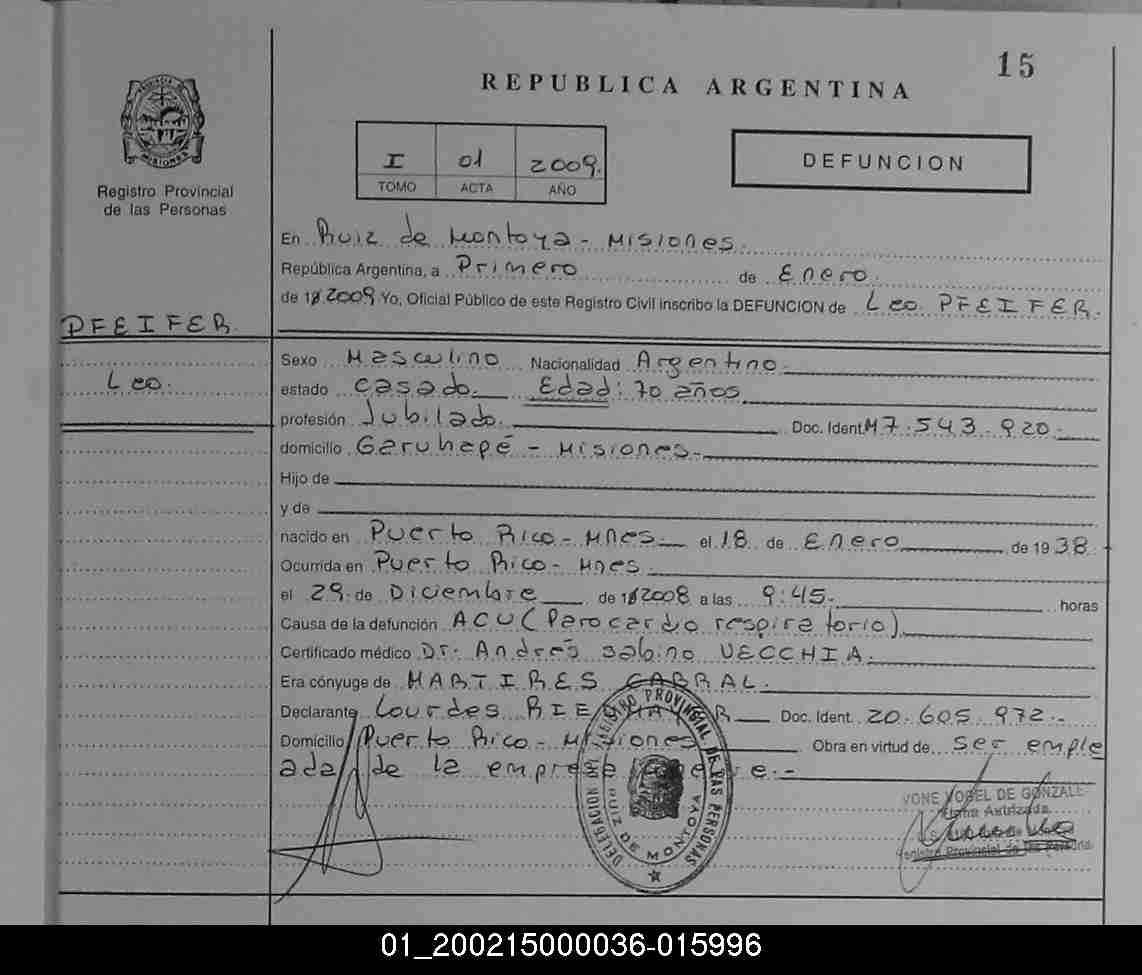 15
REPUBLICA ARGENTINA
PROVINCIA DE MISIONES
Registro Provincial
de las Personas
I 01 2009.
TOMO ACTA AÑO
DEFUNCION
En Ruiz de Montoya - Misiones.
República Argentina, a Primero de Enero.
de 19 2009 Yo, Oficial Público de este Registro Civil inscribo la DEFUNCION de Leo PFEIFER.
PFEIFER.
Leo.
Sexo Masculino Nacionalidad Argentino.
estado casado. Edad: 70 años
profesión Jubilado. Doc. Ident. M7.543.920.
domicilio Garuhapé - Misiones.
Hijo de
y de
nacido en Puerto Rico - Mnes. el 18 de Enero de 1938
Ocurrida en Puerto Rico - Mnes.
el 29 de Diciembre de 19 2008 a las 9:45. horas
Causa de la defunción ACU (Parocardio respiratorio)
Certificado médico Dr. Andrés Sabino VECCHIA.
Era cónyuge de MARTIRES CABRAL.
Declarante Lourdes Doc. Ident. 20.605.972.-
Domicilio Puerto Rico - Misiones Obra en virtud de ser emple
ada de la empresa
DELEGACION DEL REGISTRO PROVINCIAL DE LAS PERSONAS
RUIZ DE MONTOYA
VONE VOGEL DE GONZALE
Firma Autorizada
Registro Provincial de las Personas
01_200215000036-015996